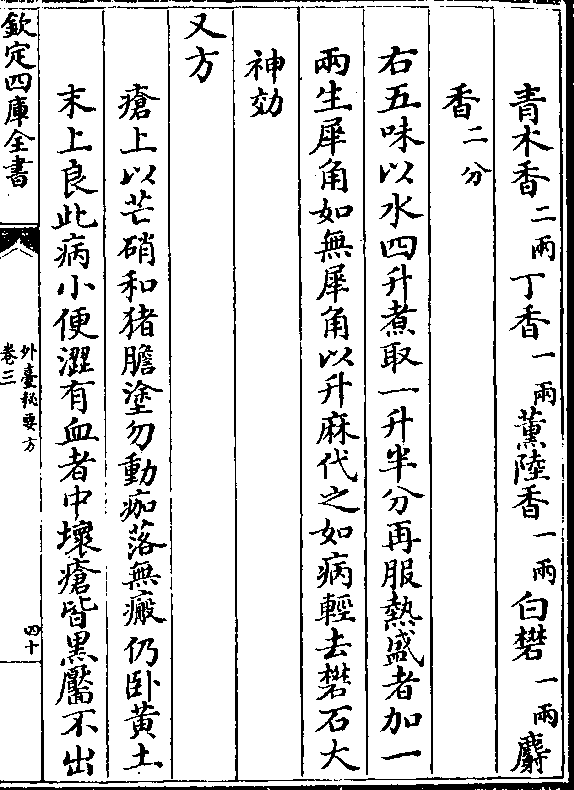 青木香二兩丁香一兩薰陸香一兩白礬一兩麝
香二分
右五味以水四升煮取一升半分再服熱盛者加一
兩生犀角如無犀角以升麻代之如病輕去礬石大
神効
又方
瘡上以芒硝和猪膽塗勿動痂落無瘢仍卧黄土
末上良此病小便澀有血者中壞瘡皆黒黶不出
欽定四庫全書
外臺秘要方
卷三
四十